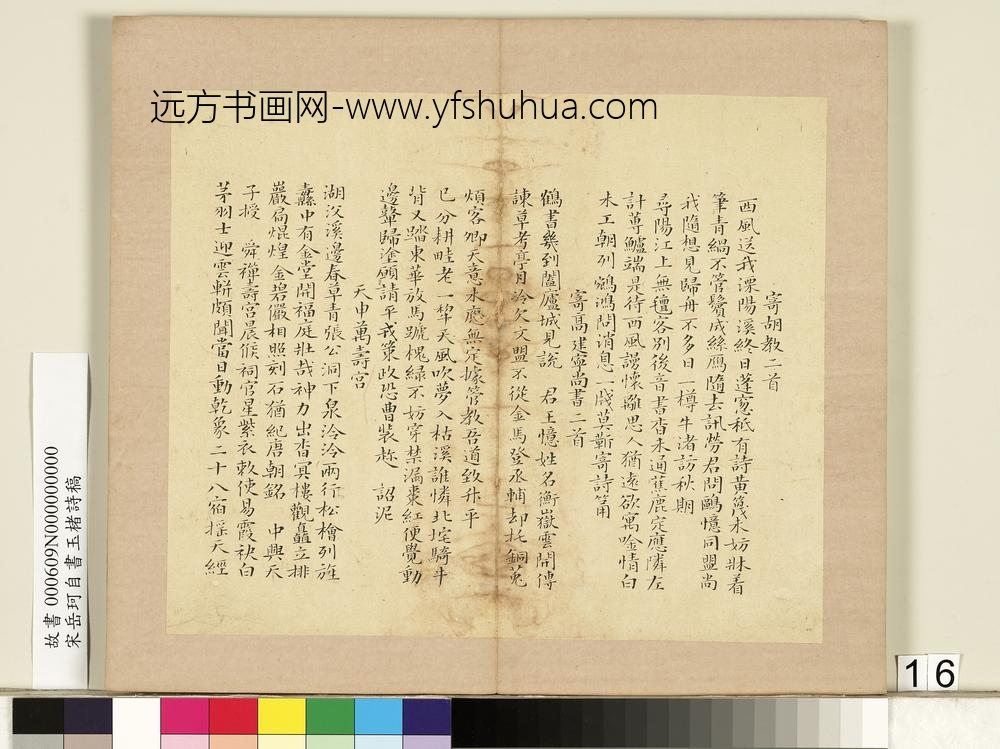 远方书画网-www.yfshuhua.com
寄胡教二首
西風送我溧陽溪終日蓬窓秖有詩黄篾未妨牀着
筆青縚不管鬢成絲鴈隨去訊勞君問鷗憶同盟尚
我隨想見歸舟不多日一樽牛渚訪秋期
尋陽江上無氊客別後音書杳未通蕉鹿定應隣左
計蓴鱸端是待西風謭懷離思人猶遠欲寓唫情白
未工朝列鵷鴻問消息一牋莫靳寄詩筩
寄髙建寧尚書二首
鶴書幾到闔廬城見説 君王憶姓名衡嶽雲開傳
諫草考亭月冷欠文盟不從金馬登丞輔却托銅菟
煩客卿天意未應無定據管教吾道致升平
已分耕畦老一犂天風吹夢入枯溪誰憐北垞騎牛
背又踏東華放馬蹏槐緑不妨穿禁漏棗紅便覺動
邊鼙歸塗願請平戎策政恐曹裝趂 詔泥
天申萬壽宫
湖㳇溪邊春草青張公洞下泉泠泠兩行松檜列旌
纛中有金堂開福庭壯哉神力出杳冥樓觀矗立排
巖扃焜煌金碧儼相照刻石猶紀唐朝銘 中興天
子授 舜禪壽宫晨候祠官星紫衣敕使易霞袂白
茅羽士迎雲軿頗聞當日動乾象二十八宿揺天經
故書 000609N000000000
宋岳珂自書玉楮詩稿
16